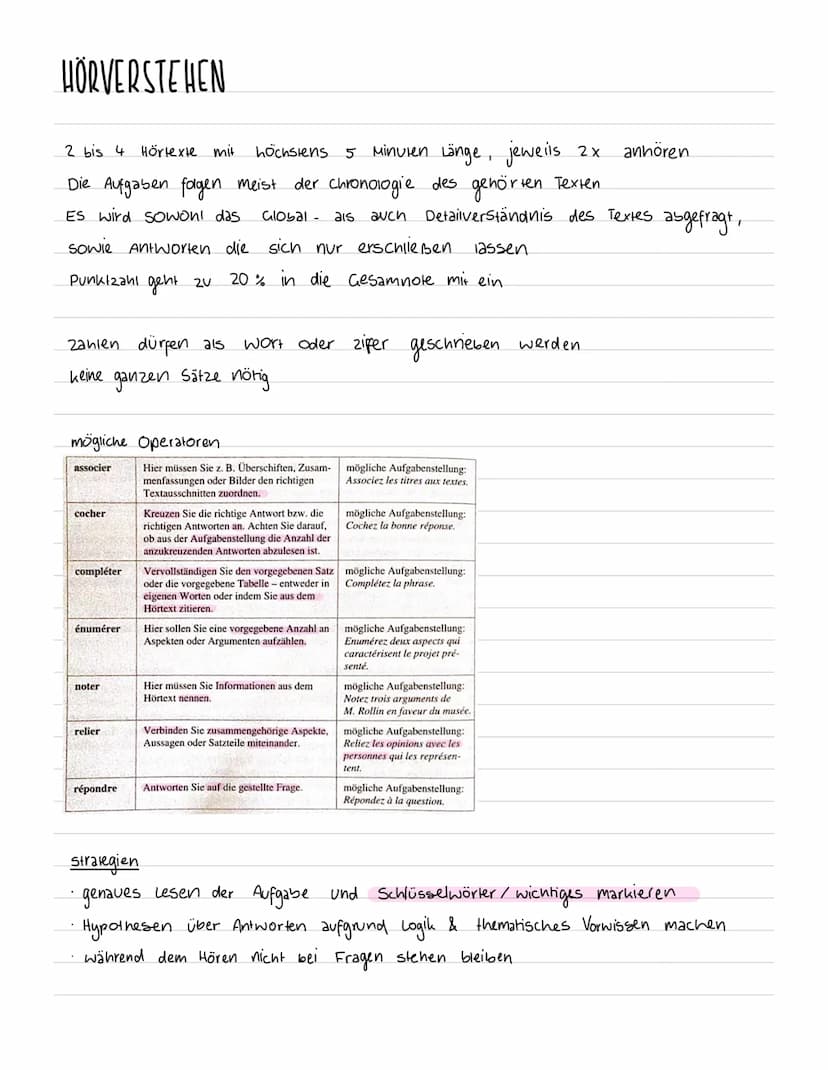 HÖRVERSTEHEN
2 bis 4 Hörtexte mit höchstens 5 Minuten Länge, jeweils 2x anhören
Die Aufgaben folgen meist der Chronologie des gehörten Texten
Es wird sowohl das Global- als auch Detailverständnis des Textes abgefragt,
sowie Antworten die sich nur erschließen lassen
Punktzahl geht zu 20% in die Gesamnote mit ein
zahlen dürfen als Wort oder zifer geschrieben werden
keine ganzen Sätze nötig
mögliche Operatoren
associer
Hier müssen Sie z. B. Überschiften, Zusam-
menfassungen oder Bilder den richtigen
Textausschnitten zuordnen.
mögliche Aufgabenstellung:
Associez les titres aux textes.
cocher
Kreuzen Sie die richtige Antwort bzw. die
richtigen Antworten an. Achten Sie darauf,
ob aus der Aufgabenstellung die Anzahl der
anzukreuzenden Antworten abzulesen ist.
mögliche Aufgabenstellung:
Cochez la bonne réponse.
compléter
Vervollständigen Sie den vorgegebenen Satz
oder die vorgegebene Tabelle – entweder in
eigenen Worten oder indem Sie aus dem
Hörtext zitieren.
mögliche Aufgabenstellung:
Complétez la phrase.
énumérer
Hier sollen Sie eine vorgegebene Anzahl an
Aspekten oder Argumenten aufzählen.
mögliche Aufgabenstellung:
Enumérez deux aspects qui
caractérisent le projet pré-
senté.
noter
Hier müssen Sie Informationen aus dem
Hörtext nennen.
mögliche Aufgabenstellung:
Notez trois arguments de
M. Rollin en faveur du musée.
relier
Verbinden Sie zusammengehörige Aspekte,
Aussagen oder Satzteile miteinander.
mögliche Aufgabenstellung:
Reliez les opinions avec les
personnes qui les représen-
tent.
répondre
Antworten Sie auf die gestellte Frage.
mögliche Aufgabenstellung:
Répondez à la question.
strategien
· genaues Lesen der Aufgabe und Schlüsselwörter / wichtiges markieren
· Hypothesen über Antworten aufgrund Logik & thematisches Vorwissen machen
· während dem Hören nicht bei Fragen stehen bleiben